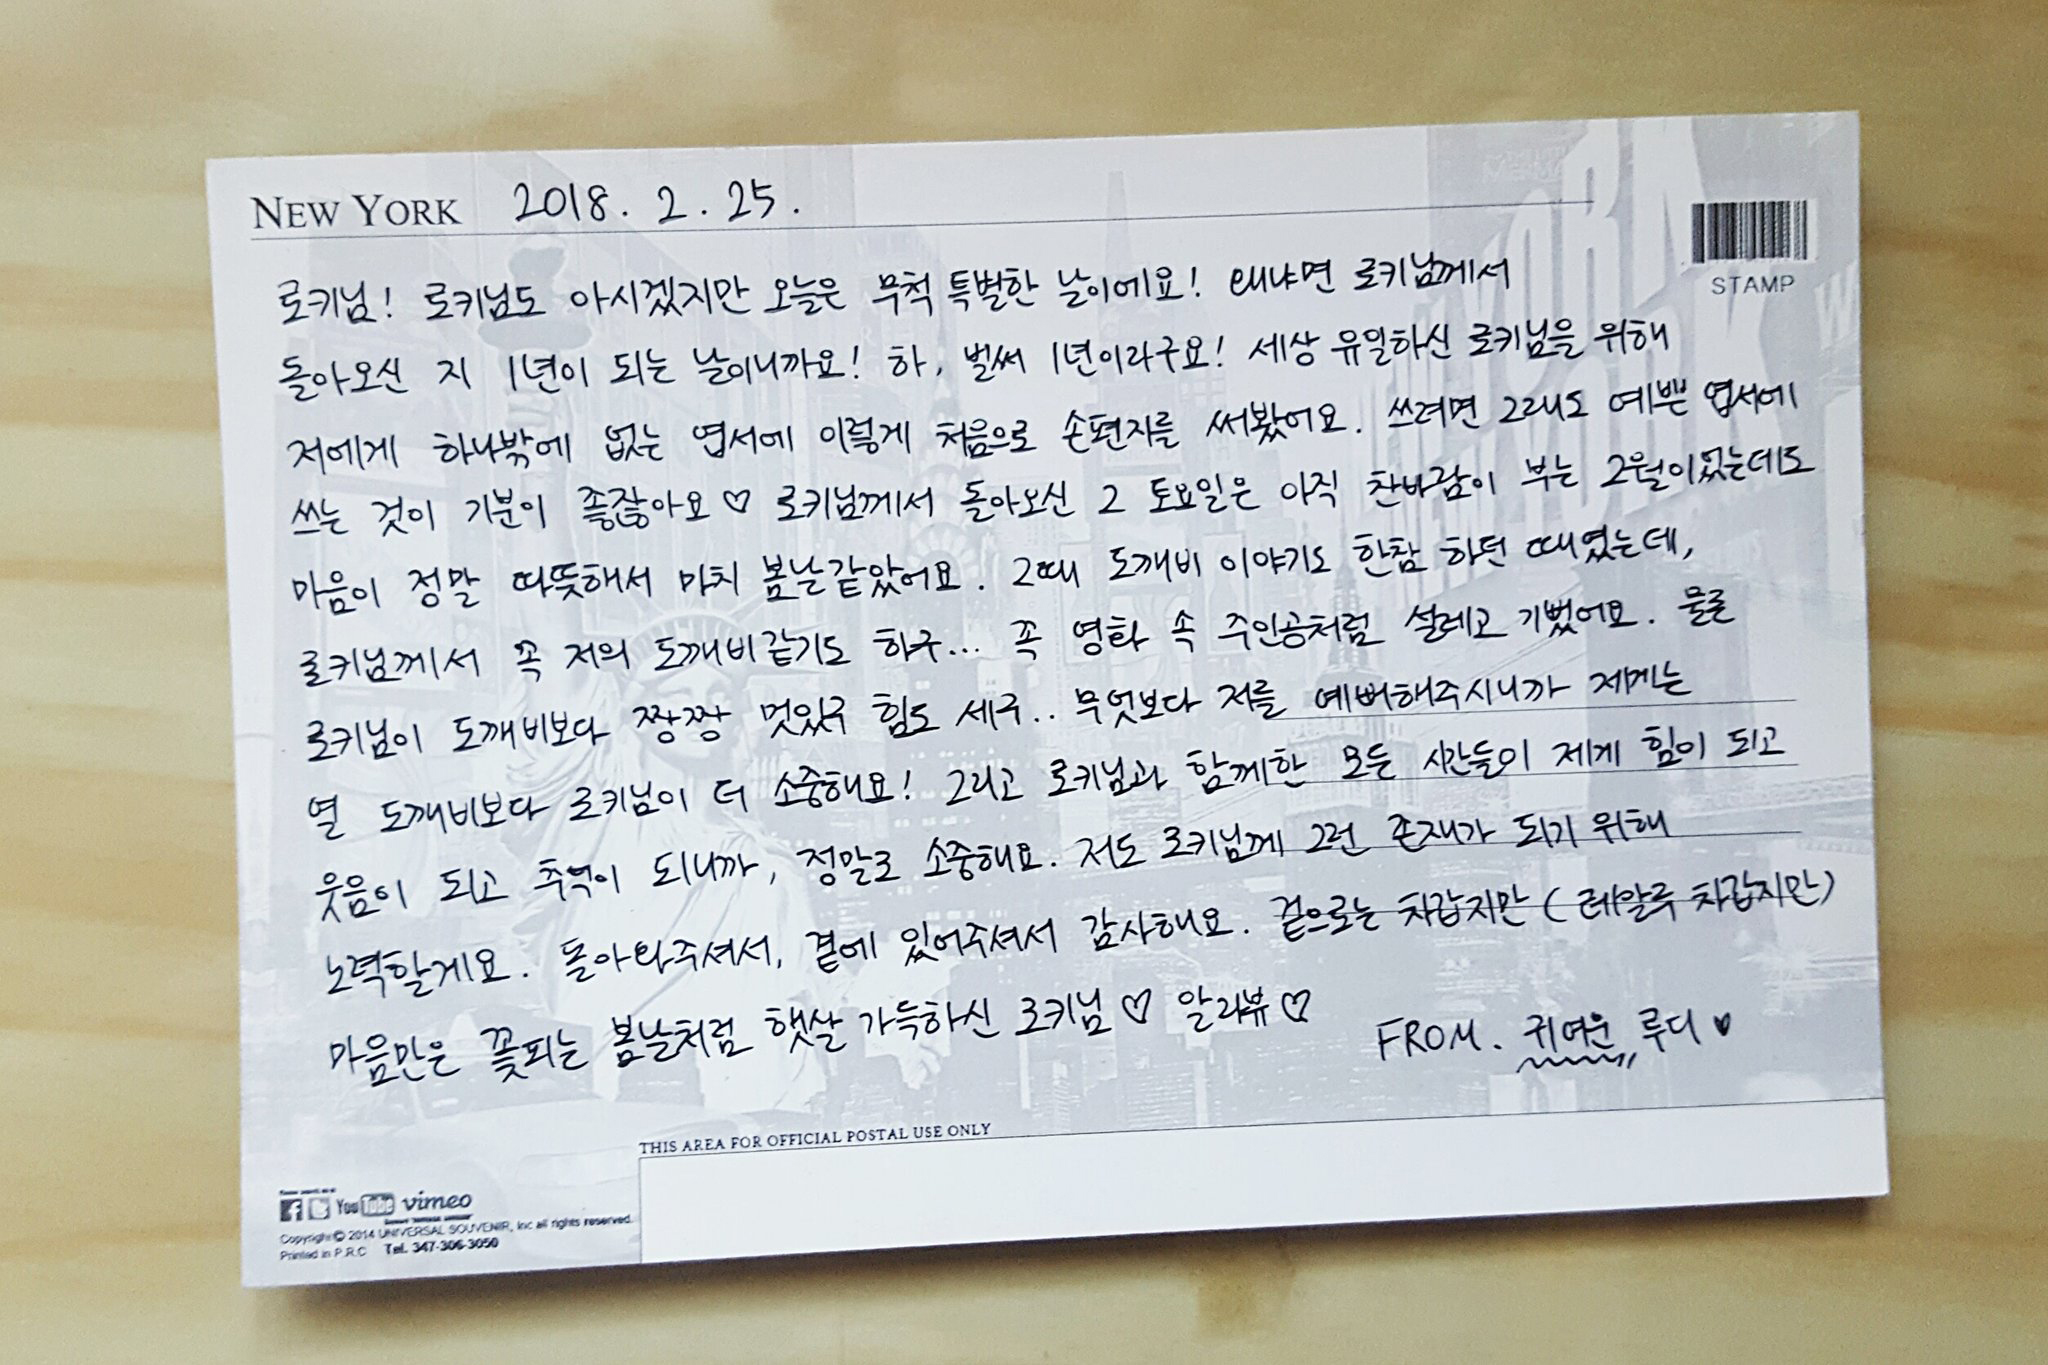 NEW YORK 2018. 2. 25.
STAMP
로키님! 로키님도 아시겠지만 오늘은 무척 특별한 날이에요! 왜냐면 로키님께서
돌아오신 지 1년이 되는 날이니까요! 하, 벌써 1년이라구요! 세상 유일하신 로키님을 위해
저에게 하나밖에 없는 엽서에 이렇게 처음으로 손편지를 써봤어요. 쓰려면 그래도 예쁜 엽서에
쓰는 것이 기분이 좋잖아요♡ 로키님께서 돌아오신 그 토요일은 아직 찬바람이 부는 2월이었는데도
마음이 정말 따뜻해서 마치 봄날같았어요. 그때 도깨비 이야기도 한참 하던 때였는데,
로키님께서 꼭 저의 도깨비같기도 하구... 꼭 영화 속 주인공처럼 설레고 기뻤어요. 물론
로키님이 도깨비보다 짱짱 멋있구 힘도 세구.. 무엇보다 저를 예뻐해주시니까 제게는
열 도깨비보다 로키님이 더 소중해요! 그리고 로키님과 함께한 모든 시간들이 제게 힘이 되고
웃음이 되고 추억이 되니까, 정말로 소중해요. 저도 로키님께 그런 존재가 되기 위해
노력할게요. 돌아와주셔서, 곁에 있어주셔서 감사해요. 겉으로는 차갑지만 (레알루 차갑지만)
마음만은 꽃피는 봄날처럼 햇살 가득하신 로키님♡ 알라뷰♡
FROM. 귀여운 루디♥
THIS AREA FOR OFFICIAL POSTAL USE ONLY
YouTube vimeo
Copyright © 2014 UNIVERSAL SOUVENIR, Inc all rights reserved.
Printed in P.R.C Tel. 347-306-3050